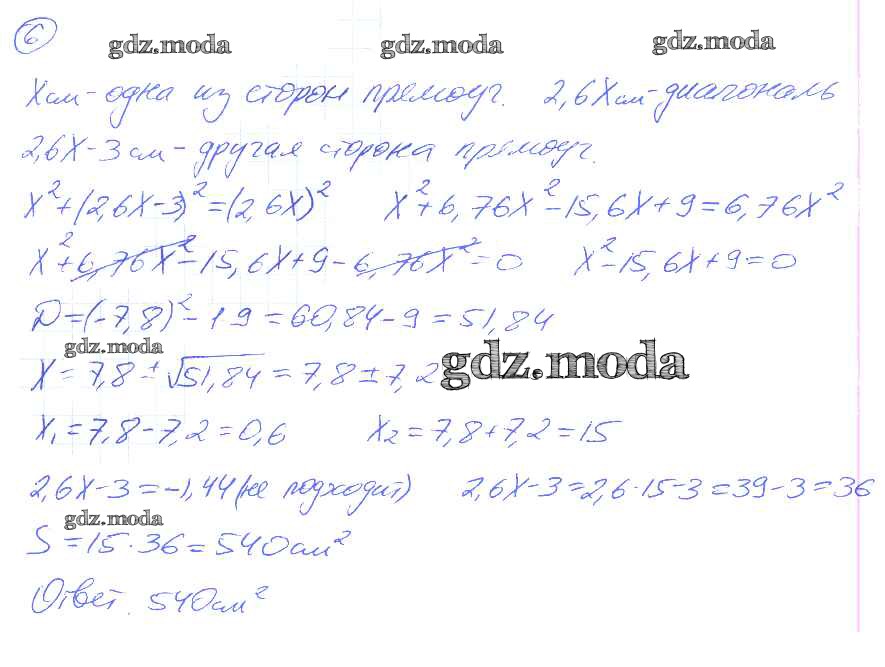 6
gdz.moda gdz.moda gdz.moda
Xсм - одна из сторон прямоуг. 2,6Xсм - диагональ
2,6X - 3 см - другая сторона прямоуг.
X² + (2,6X - 3)² = (2,6X)² X² + 6,76X² - 15,6X + 9 = 6,76X²
X² + 6,76X² - 15,6X + 9 - 6,76X² = 0 X² - 15,6X + 9 = 0
D = (-7,8)² - 1 9 = 60,84 - 9 = 51,84
gdz.moda
X = 7,8 ± √51,84 = 7,8 ± 7,2
gdz.moda
X₁ = 7,8 - 7,2 = 0,6 X₂ = 7,8 + 7,2 = 15
2,6X - 3 = -1,44 (не подходит) 2,6X - 3 = 2,6·15 - 3 = 39 - 3 = 36
gdz.moda
S = 15·36 = 540см²
Ответ. 540см²